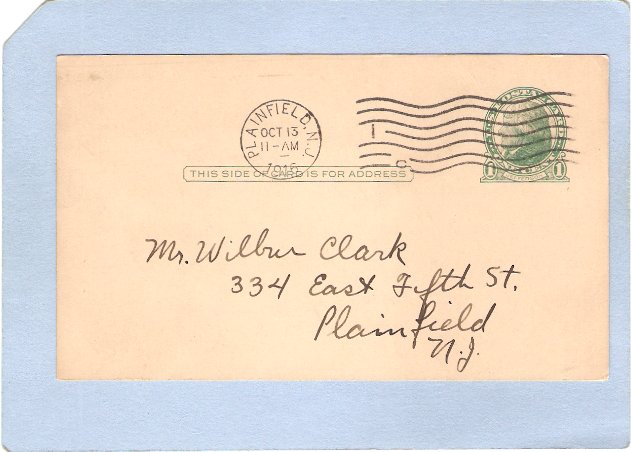 PLAINFIELD, N.J.
OCT 13
11-AM
1916
1
C
1 1
THIS SIDE OF CARD IS FOR ADDRESS
Mr. Wilbur Clark
334 East Fifth St.
Plainfield
N.J.